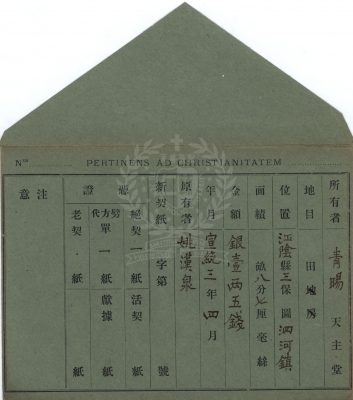 Nos PERTINENS AD CHRISTIANITATEM
所有者 青暘 天主堂
地目 田地房
位置 江陰縣三保圖泗河鎮
面積 畝八分七厘毫絲
金額 銀壹兩五錢
年月 宣統三年四月
原有者 姚漢泉
新契紙 字第 號
憑證 絕契一紙 活契 紙
代方劈單一紙 獻據 紙
老契 紙
注意